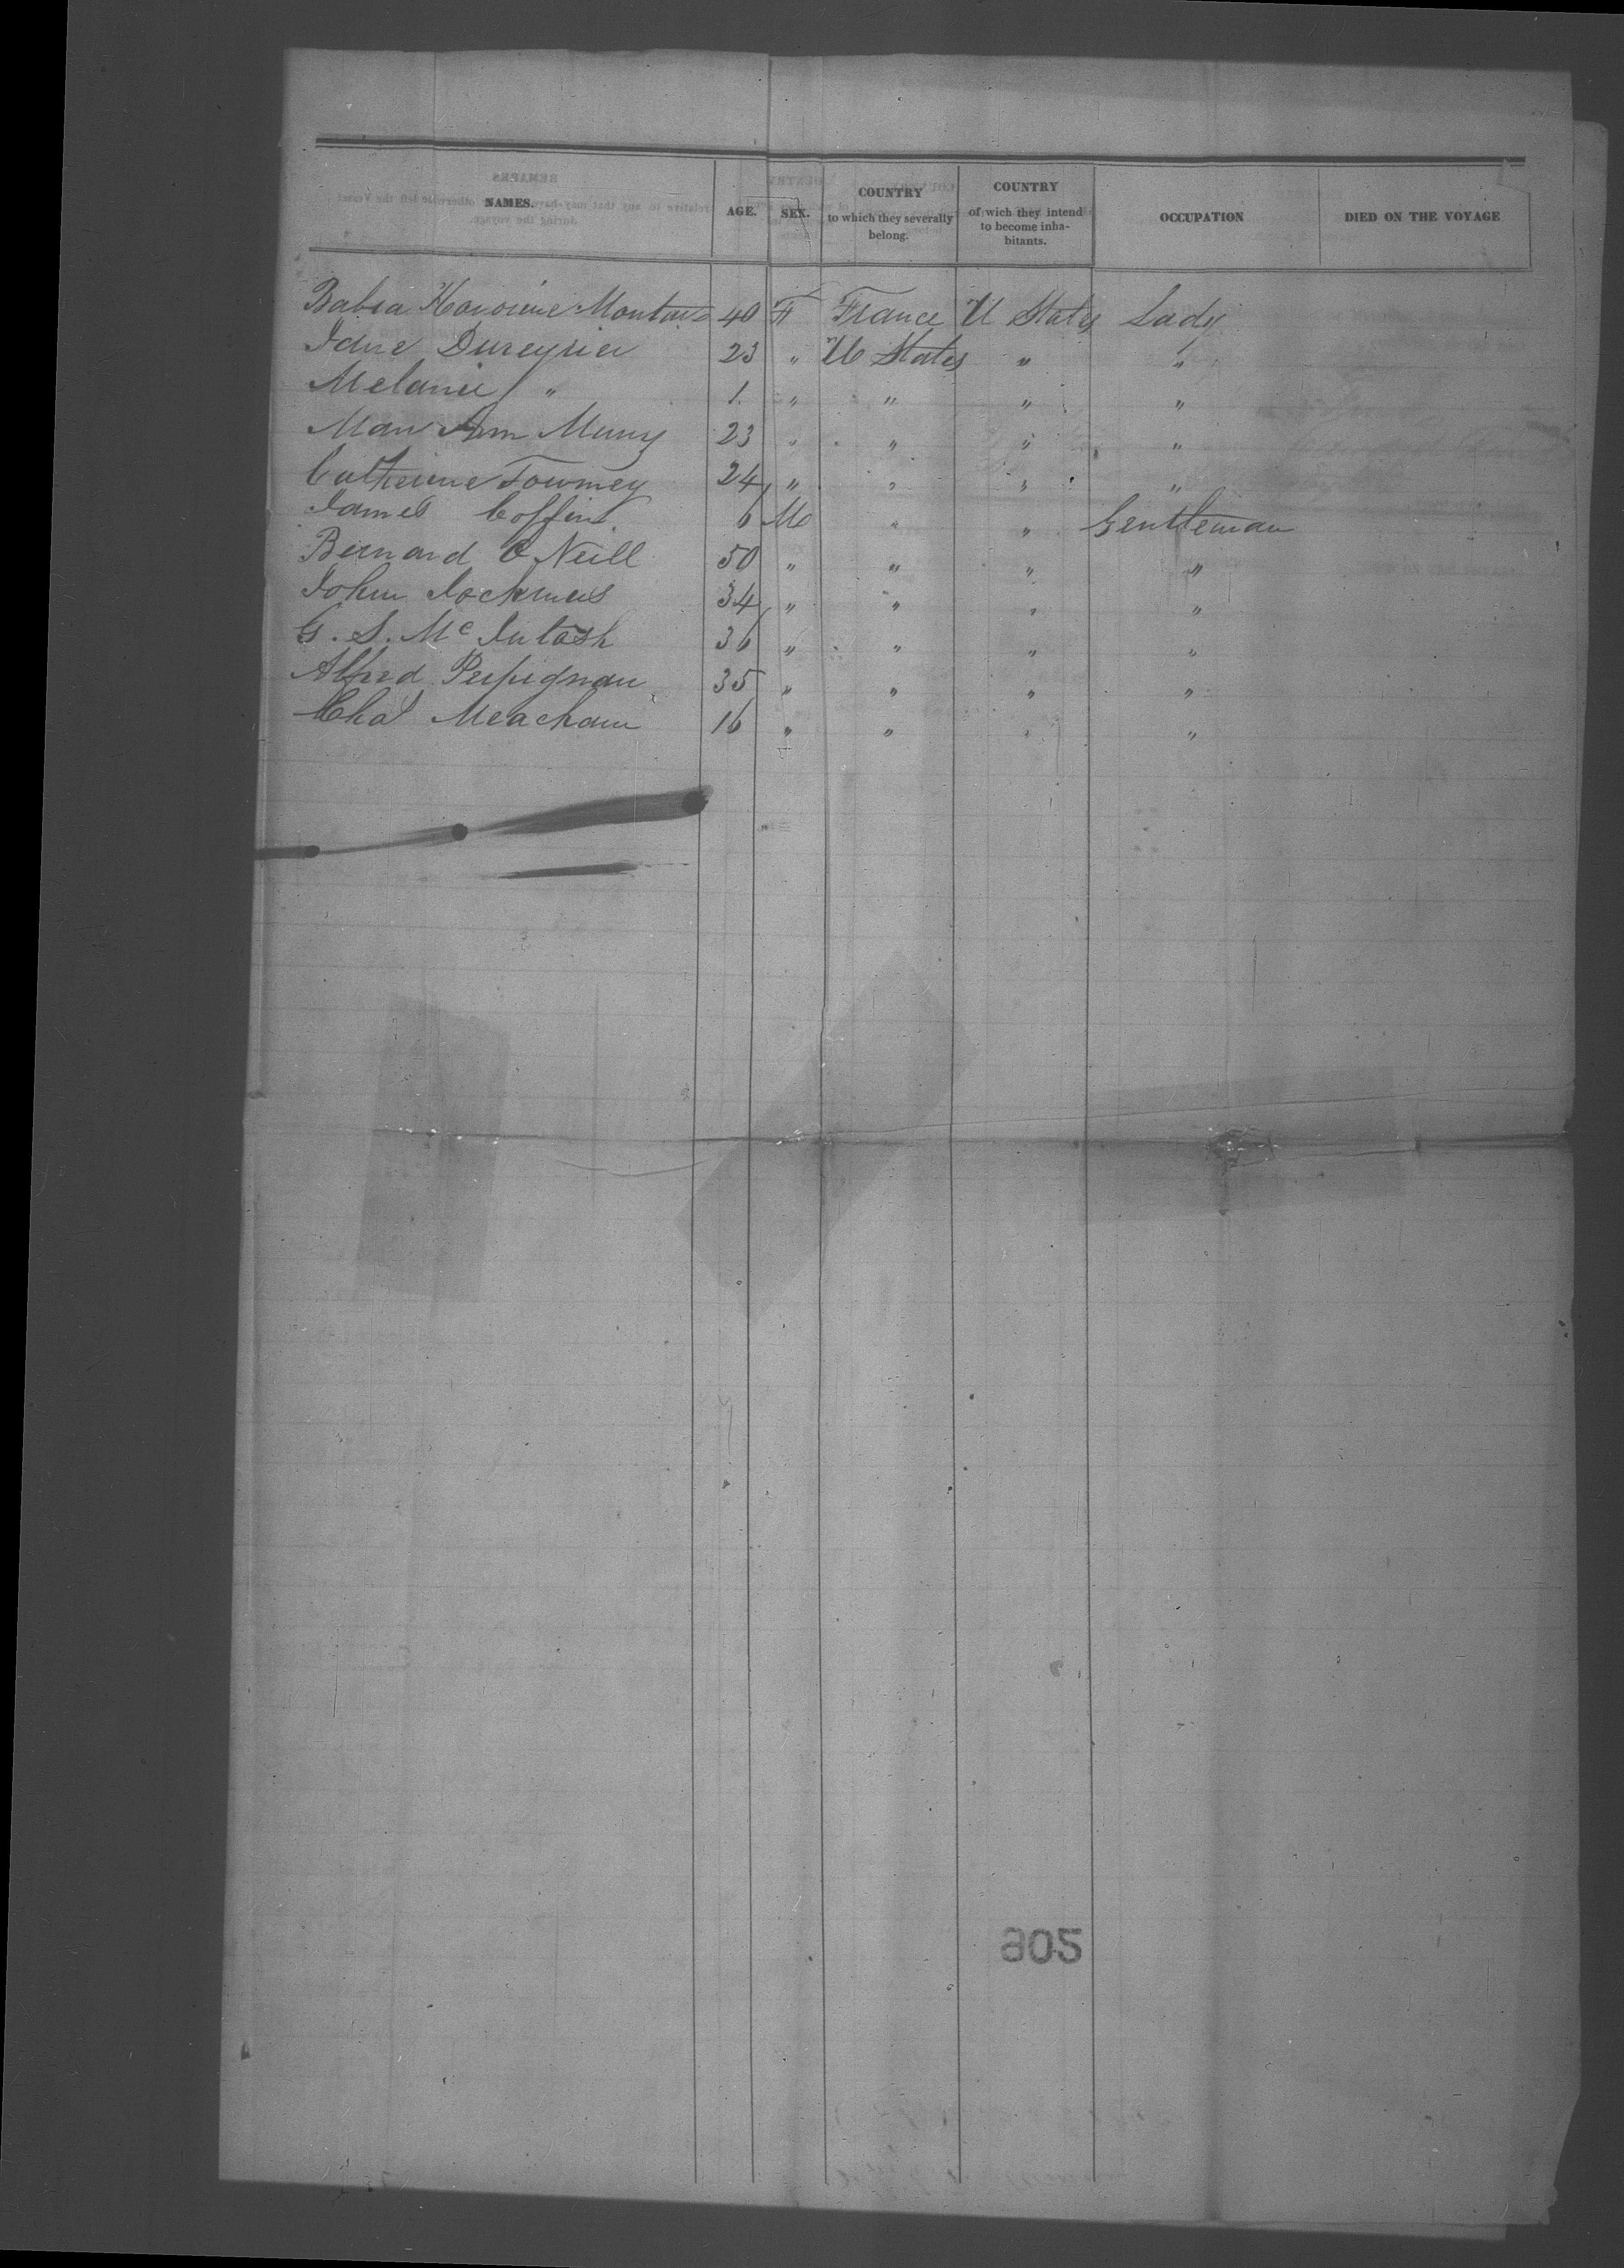 NAMES. AGE. SEX. COUNTRY to which they severally belong. COUNTRY of wich they intend to become inhabitants. OCCUPATION DIED ON THE VOYAGE
40 F France U States Lady
23 " U States " "
Melanie " 1. " " " "
Ann 23 " " " "
Catherine Towmey 24 " " " "
James Coffins. 6 M " " Gentleman
Bernard O Neill 50 " " " "
John Jochmus 34 " " " "
G. S. Mc Intosh 36 " " " "
Alfred Perpignan 35 " " " "
Chas Meacham 16 " " " "
902